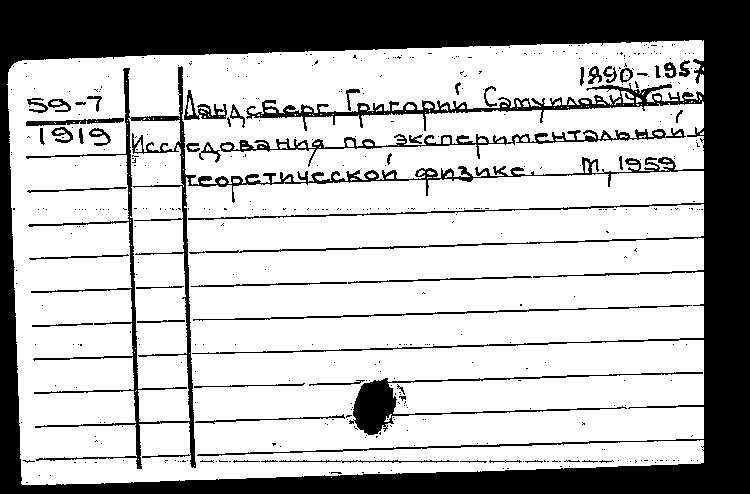 1890-1957
59-7 Ландсберг, Григорий Самуилович
1919 Исследования по экспериментальной и
теоретической физике. М., 1959